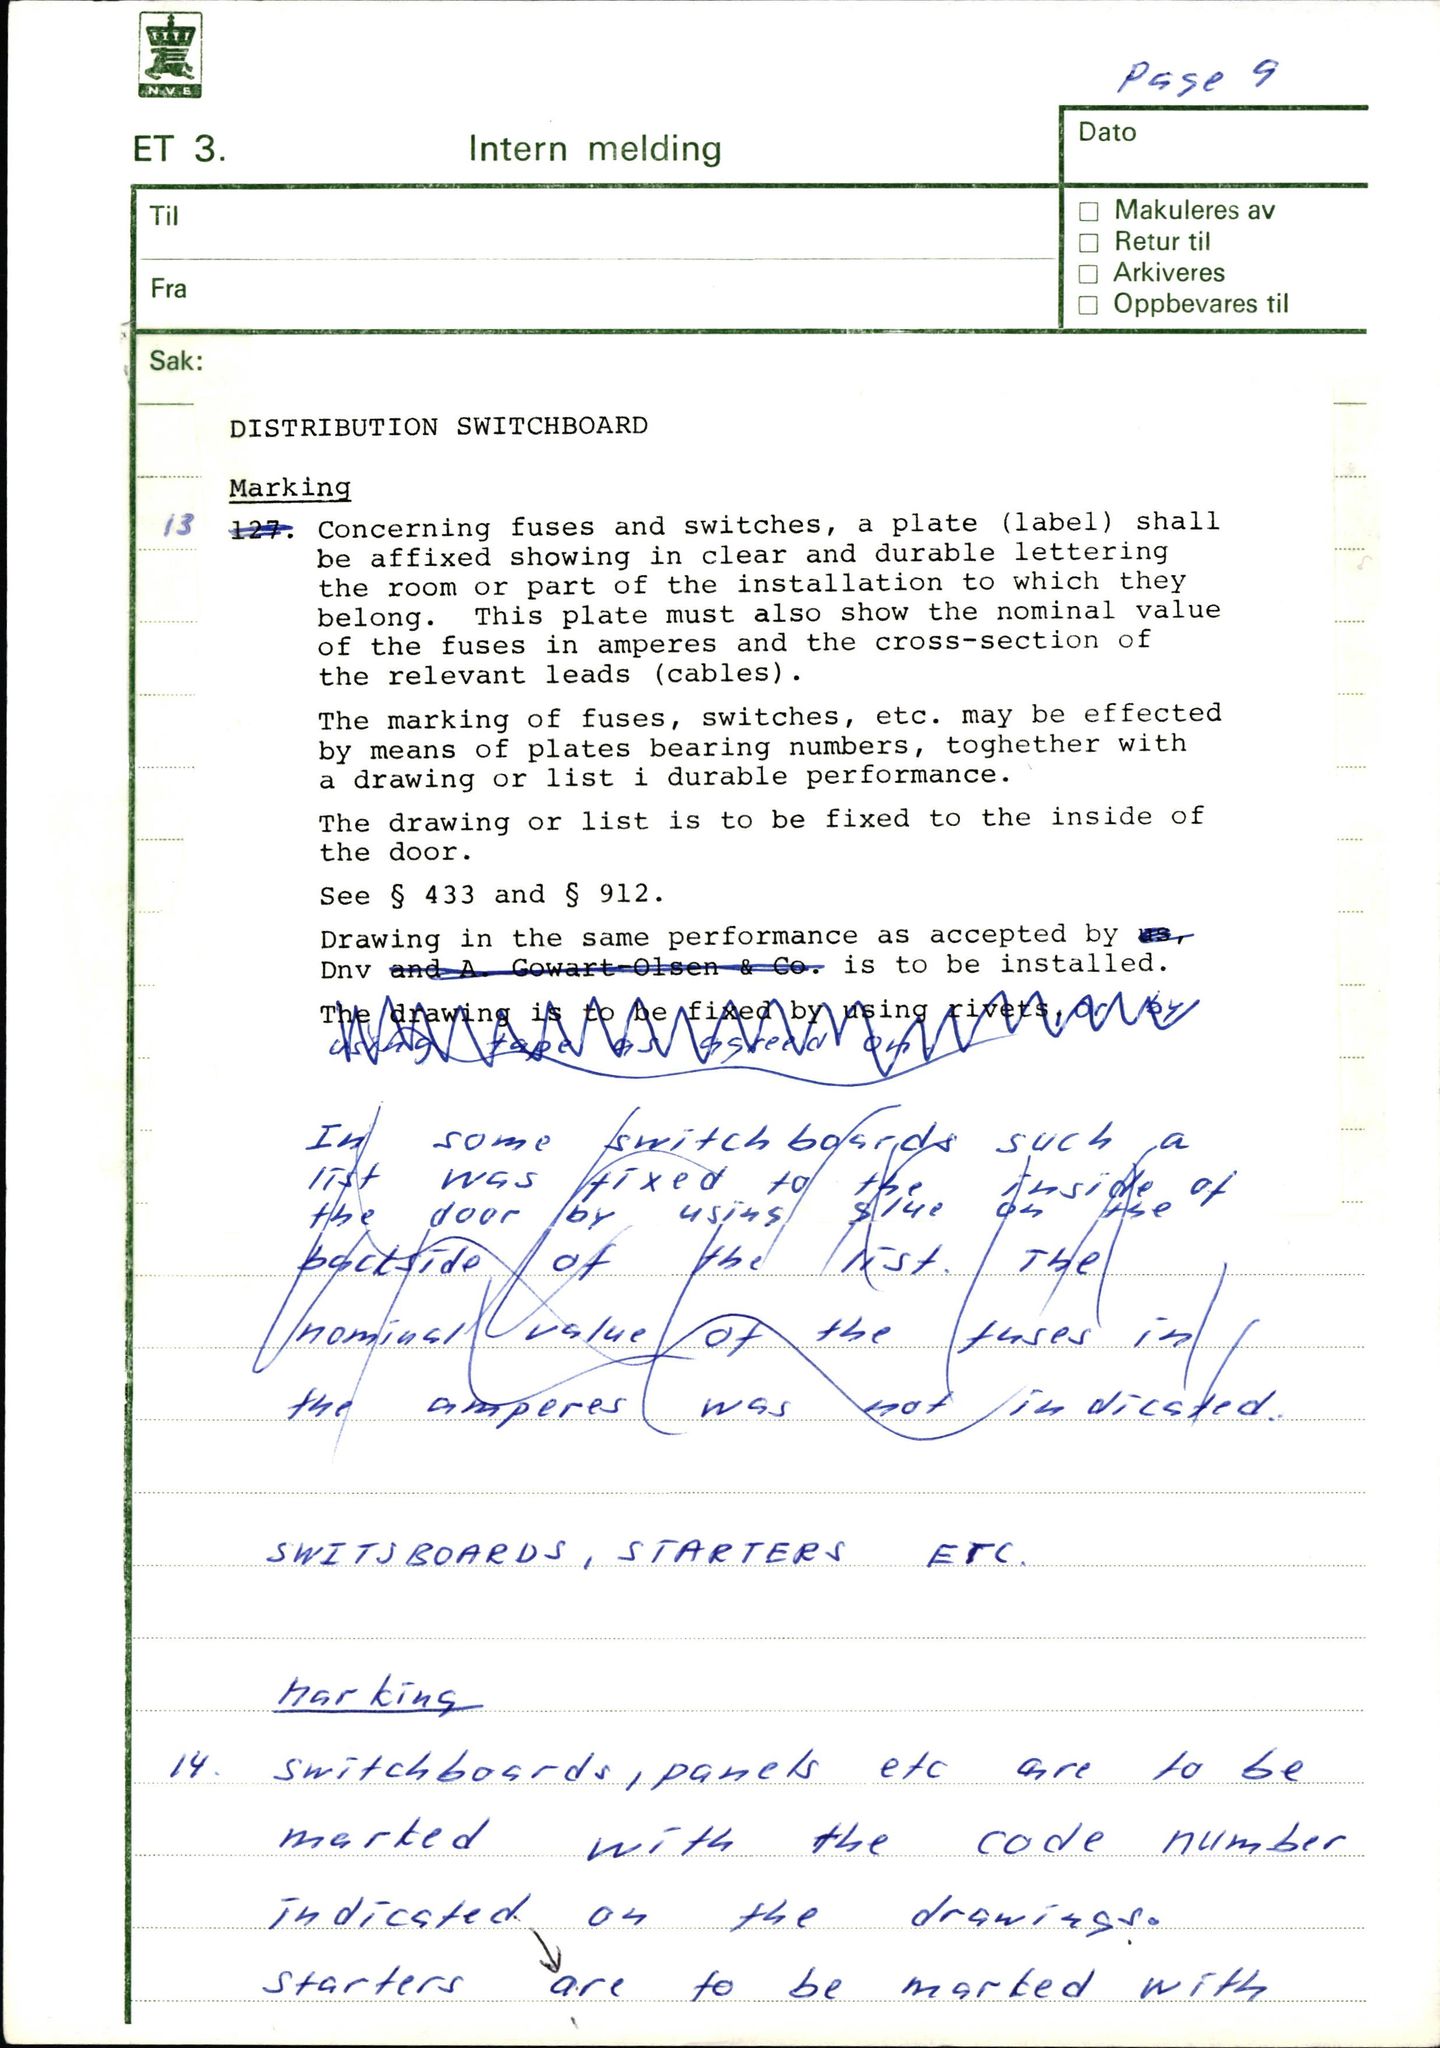 N.V.E
Page 9
ET 3.
Intern melding
Dato
Til
Makuleres av
Retur til
Arkiveres
Oppbevares til
Fra
Sak:
DISTRIBUTION SWITCHBOARD
Marking
13 127. Concerning fuses and switches, a plate (label) shall
be affixed showing in clear and durable lettering
the room or part of the installation to which they
belong. This plate must also show the nominal value
of the fuses in amperes and the cross-section of
the relevant leads (cables).
The marking of fuses, switches, etc. may be effected
by means of plates bearing numbers, toghether with
a drawing or list i durable performance.
The drawing or list is to be fixed to the inside of
the door.
See § 433 and § 912.
Drawing in the same performance as accepted by us,
Dnv and A. Gowart-Olsen & Co. is to be installed.
The drawing is to be fixed by using rivets, or by
using tape as agreed on.
In some switchboards such a
list was fixed to the inside of
the door by using glue on the
backside of the list. The
nominal value of the fuses in
the amperes was not indicated.
SWITSBOARDS, STARTERS ETC.
Marking
14. switchboards, panels etc are to be
marked with the code number
indicated on the drawings.
starters are to be marked with